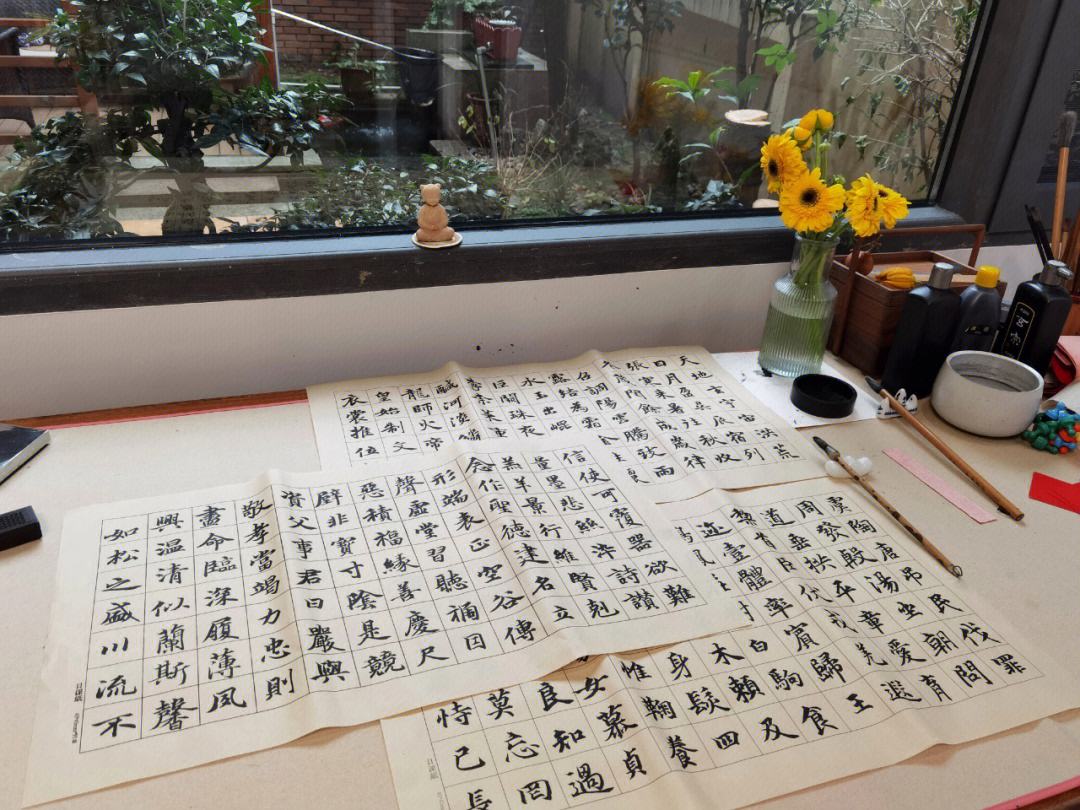 天地玄宇宙洪荒
日月盈昃辰宿列
張寒來暑往秋收
閏餘成歲律
調陽雲騰致雨
露結為
水玉出崐
巨闕珠夜
柰菜重
鹹河淡鱗
龍師火帝
皇始制文
衣裳推位
信使可覆器欲難
量墨悲絲染詩讚
羔羊景行維賢剋
念作聖德建名立
形端表正空谷傳
聲虛堂習聽禍因
惡積福緣善慶尺
璧非寶寸陰是競
資父事君曰嚴與
敬孝當竭力忠則
盡命臨深履薄夙
興溫清似蘭斯馨
如松之盛川流不
虞陶唐弔民伐罪
周發殷湯坐朝問
道垂拱平章愛育
黎首臣伏戎羌遐
邇壹體率賓歸王
白駒食
木賴及
身髮四
惟鞠養
女慕貞
良知過
莫忘罔
恃己長
玄宗